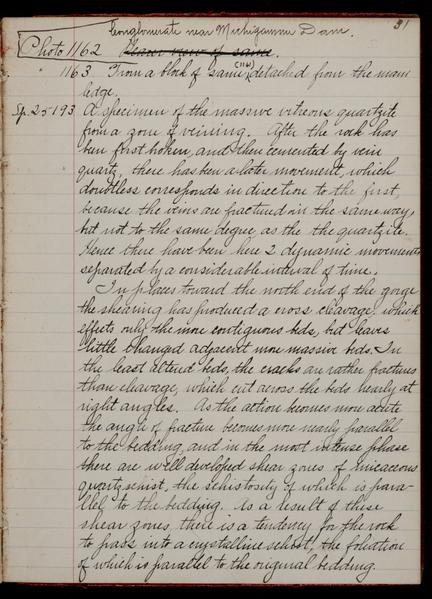 Conglomerate near Michigamme Dam.
31
Photo 1162 Nearer view of same.
1163. From a block of same (1161) detached from the main
ledge.
Sp. 25193 A specimen of the massive vitreous quartzite
from a zone of veining. After the rock has
been first broken, and then cemented by vein
quartz, there has been a later movement, which
doubtless corresponds in direction to the first,
because the veins are fractured in the same way,
but not to the same degree as the the quartzite.
Hence there have been here 2 dynamic movements
separated by a considerable interval of time.
In places toward the north end of the gorge
the shearing has produced a cross cleavage, which
effects only the more contiguous beds, but leaves
little changed adjacent more massive beds. In
the least altered beds, the cracks are rather fractures
than cleavage, which cut across the beds nearly at
right angles. As the action becomes more acute
the angle of fracture becomes more nearly parallel
to the bedding, and in the most intense phase
there are well developed shear zones of micaceous
quartzschist, the schistosity of which is para-
llel to the bedding. As a result of these
shear zones, there is a tendency for the rock
to pass into a crystalline schist, the foliation
of which is parallel to the original bedding.